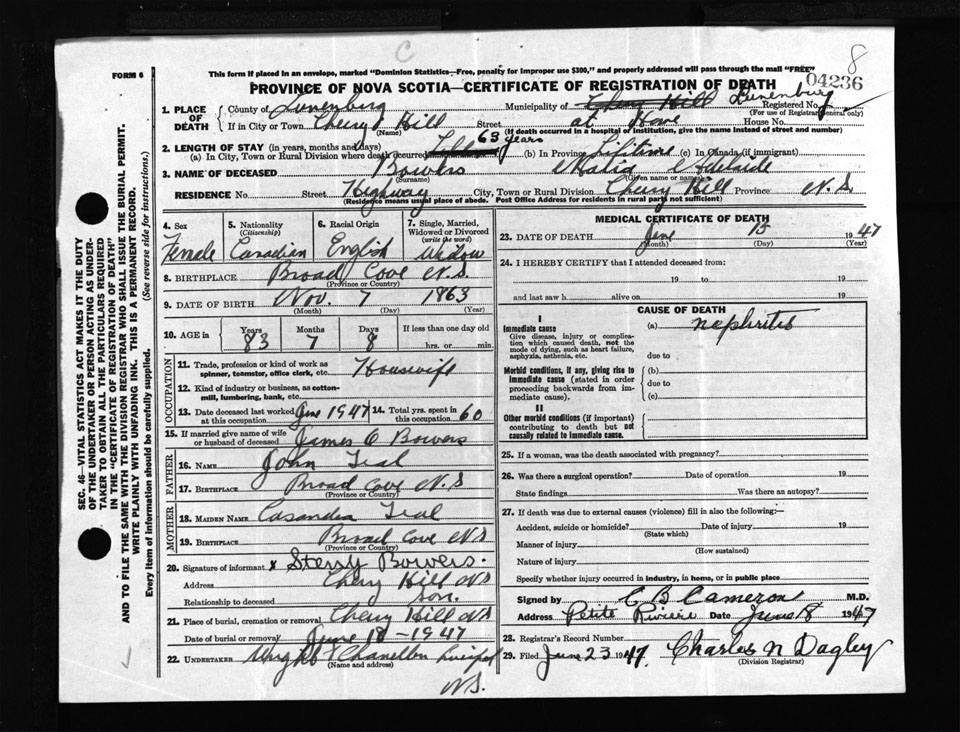 C
8
FORM 6
This form if placed in an envelope, marked "Dominion Statistics—Free, penalty for improper use $300," and properly addressed will pass through the mail "FREE"
PROVINCE OF NOVA SCOTIA—CERTIFICATE OF REGISTRATION OF DEATH
04236
1. PLACE OF DEATH
County of Lunenburg Municipality of Chery Hill Lunenburg Registered No.
(For use of Registrar General only)
If in City or Town Chery Hill Street at Home House No.
(Name) (If death occurred in a hospital or institution, give the name instead of street and number)
2. LENGTH OF STAY (in years, months and days)
(a) In City, Town or Rural Division where death occurred 63 years (b) In Province Lifitime (c) In Canada (if immigrant)
3. NAME OF DECEASED Bowers Maria Adelaide
(Surname) (Given name or names)
RESIDENCE No. Street Highway City, Town or Rural Division Chery Hill Province N.S.
(Residence means usual place of abode. Post Office Address for residents in rural parts not sufficient)
SEC. 46—VITAL STATISTICS ACT MAKES IT THE DUTY
OF THE UNDERTAKER OR PERSON ACTING AS UNDER-
TAKER TO OBTAIN ALL THE PARTICULARS REQUIRED
IN THE "CERTIFICATE OF REGISTRATION OF DEATH"
AND TO FILE THE SAME WITH THE DIVISION REGISTRAR WHO SHALL ISSUE THE BURIAL PERMIT.
WRITE PLAINLY WITH UNFADING INK. THIS IS A PERMANENT RECORD.
Every item of information should be carefully supplied. (See reverse side for instructions.)
4. Sex
Female
5. Nationality
(Citizenship)
Canadian
6. Racial Origin
English
7. Single, Married, Widowed or Divorced
(write the word)
Widow
8. BIRTHPLACE Broad Cove N.S.
(Province or Country)
9. DATE OF BIRTH Nov. 7 1863
(Month) (Day) (Year)
10. AGE in
Years Months Days If less than one day old
83 7 8 hrs. or min.
OCCUPATION
11. Trade, profession or kind of work as spinner, teamster, office clerk, etc. Housewife
12. Kind of industry or business, as cotton-mill, lumbering, bank, etc.
13. Date deceased last worked at this occupation June 1947 14. Total yrs. spent in this occupation 60
15. If married give name of wife or husband of deceased James C Bowers
FATHER
16. NAME John Teal
17. BIRTHPLACE Broad Cove N.S
(Province or Country)
MOTHER
18. MAIDEN NAME Casandra Teal
19. BIRTHPLACE Broad Cove N.S
(Province or Country)
20. Signature of informant x Sterry Bowers.
Address Chery Hill N.S
Relationship to deceased Son.
21. Place of burial, cremation or removal Chery Hill N.S
Date of burial or removal June 18 - 1947
22. UNDERTAKER Liverpool
(Name and address)
N.S.
MEDICAL CERTIFICATE OF DEATH
23. DATE OF DEATH June 15 1947
(Month) (Day) (Year)
24. I HEREBY CERTIFY that I attended deceased from:
19 to 19
and last saw h alive on 19
CAUSE OF DEATH
I
Immediate cause (a) nephritis
Give disease, injury or complication which caused death, not the mode of dying, such as heart failure, asphyxia, asthenia, etc.
due to
Morbid conditions, if any, giving rise to immediate cause (stated in order proceeding backwards from immediate cause).
(b)
due to
(c)
II
Other morbid conditions (if important) contributing to death but not causally related to immediate cause.
25. If a woman, was the death associated with pregnancy?
26. Was there a surgical operation? Date of operation 19
State findings Was there an autopsy?
27. If death was due to external causes (violence) fill in also the following:—
Accident, suicide or homicide? Date of injury 19
(State which)
Manner of injury
(How sustained)
Nature of injury
Specify whether injury occurred in industry, in home, or in public place
Signed by C B Cameron M.D.
Address Petite Riviere Date June 18 1947
28. Registrar's Record Number
29. Filed June 23 1947. Charles N Dagley
(Division Registrar)